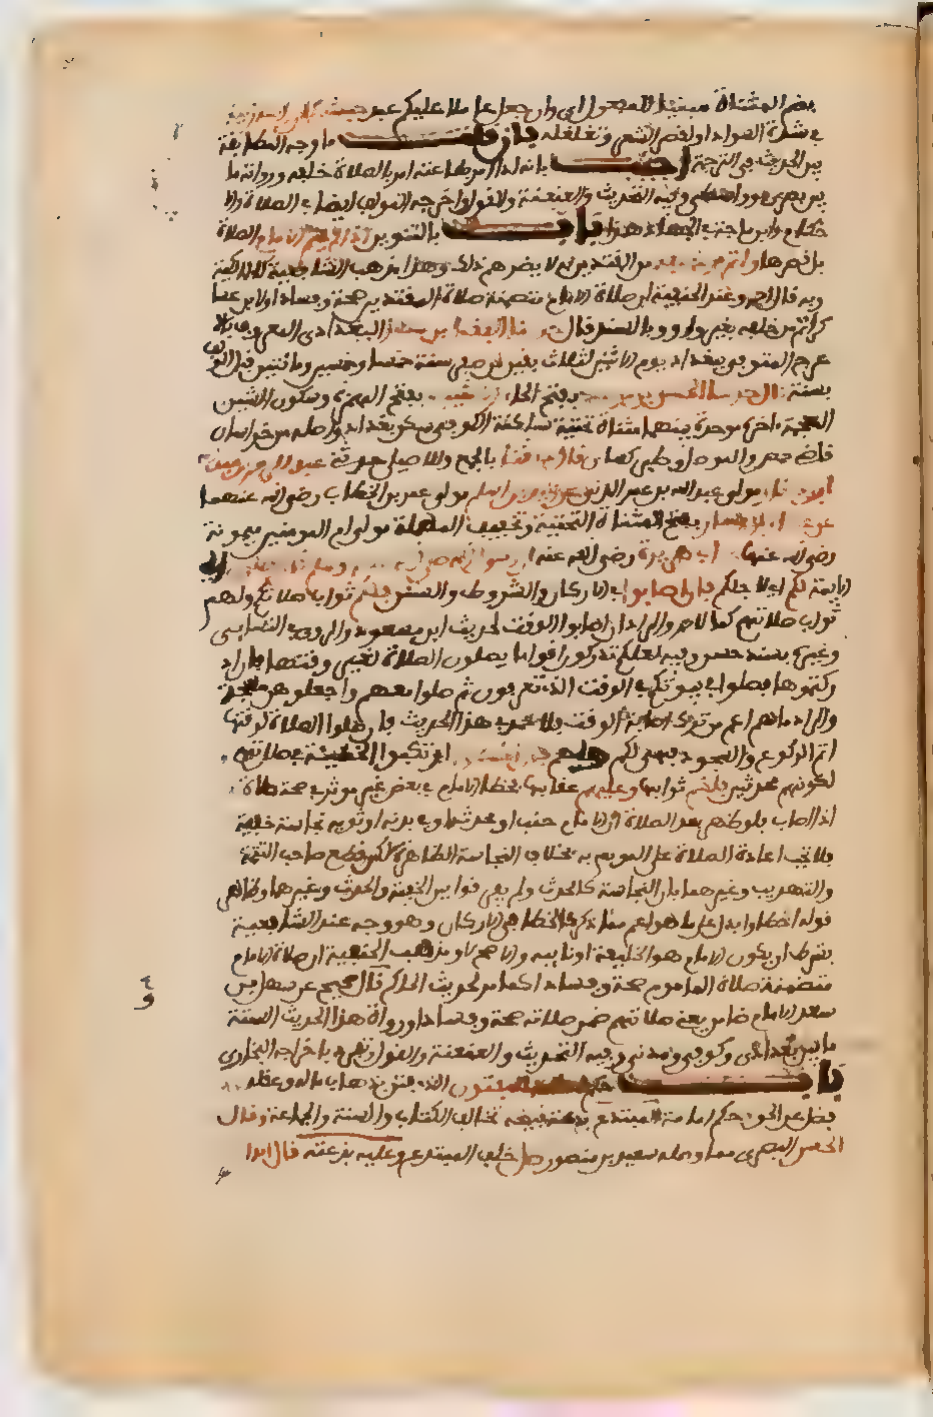 بضم المثناة مبنيا للمفعول اي وان جعل عاملا عليكم عبد حبشي كان راسه زبيبة
في شدة السواد او لقصر الشعر وتفلفله فان قلت ما وجه المطابقة
بين الحديث والترجمة اجيب بانه اذا امر بطاعته امر بالصلاة خلفه ورواته ما
بين بصري وواسطي وفيه التحديث والعنعنة والقول واخرجه المولف ايضا في الصلاة والا
حكام وابن ماجه في الجهاد هذا باب بالتنوين اذا لم يتم الامام الصلاة
بل قصر ها واتم من خلفه من المقتدين به لا يضرهم ذلك وهذا مذهب الشافعية كالمالكية
وبه قال احمد وعند الحنفية ان صلاة الامام متضمنة صلاة المقتدين صحة وفسادا ولابن عسا
كر اتم من خلفه بغير واو وبالسند قال حدثنا الفضل بن سهل البغدادي المعروف بالا
عرج المتوفى ببغداد يوم الاثنين لثلاث بقين من صفر سنة خمس وخمسين ومائتين قبل المولف
بسنة قال حدثنا الحسن بن موسى بفتح الحاء الاشيب بفتح الهمزة وسكون الشين
المعجمة اخره موحدة بينهما مثناة تحتية ساكنة الكوفي سكن بغداد واصله من خراسان
قاضي حمص والموصل وطبرستان قال حدثنا بالجمع وللاصيلي حدثني عبد الرحمن بن عبد الله
ابن دينار مولى عبد الله بن عمر المدني عن زيد بن اسلم مولى عمر بن الخطاب رضي الله عنهما
عن عطاء بن يسار بفتح المثناة التحتية وتخفيف المهملة مولى ام المومنين ميمونة
رضي الله عنها عن ابي هريرة رضي الله عنه ان رسول الله صلى الله عليه وسلم قال يصلون اي
الايمة لكم اي لاجلكم فان اصابوا في الاركان والشروط والسنن فلكم ثواب صلاتكم ولهم
ثواب صلاتهم كما لاحمد والمراد ان اصابوا الوقت لحديث ابن مسعود والمروي في النسايي
وغيره بسند حسن وفيه لعلكم تدركون اقواما يصلون الصلاة لغير وقتها فان اد
ركتموهم فصلوا في بيوتكم في الوقت الذي تعرفون ثم صلوا معهم واجعلوها سبحة
والمراد ما هم اعم من ترك اصابة الوقت فلاحمد في هذا الحديث فان صلوا الصلاة لوقتها
اتموا الركوع والسجود فهي لكم ولهم وان اخطئوا ارتكبوا الخطيئة في صلاتهم
لكونهم محدثين فلكم ثوابها وعليهم عقابها فخطا الامام في بعض غير موثر في صحة صلاة
اذا اصاب فلو ظهر بعد الصلاة ان الامام جنب او محدث او في بدنه او ثوبه نجاسة خفية
فلا تجب اعادة الصلاة على الموتم به بخلاف النجاسة الظاهرة لكن قطع صاحب التتمة
والتهذيب وغيرهما بان النجاسة كالحدث ولم يفرقوا بين الخفية والحدث وغيرها وظاهر
قوله اخطاوا يدل على ما هو اعم مما ذكر كالخطا في الاركان وهو وجه عند الشافعية
بشرط ان يكون الامام هو الخليفة او نايبه والاصح لا ومذهب الحنفية ان صلاة الامام
متضمنة صلاة الماموم صحة وفسادا كما مر لحديث الحاكم وقال صحيح عن سهل بن
سعد الامام ضامن يعني صلاتهم ضمن صلاته صحة وفسادا ورواة هذا الحديث الستة
ما بين بغدادي وكوفي ومدني وفيه التحديث والعنعنة والقول وتفرد باخراجه البخاري
باب حكم امامة المفتون الذي فتن بذهاب ماله وعقله
فضل عن الحق وحكم امامة المبتدع بدعة قبيحة تخالف الكتاب والسنة والجماعة وقال
الحسن البصري مما وصله سعيد بن منصور صل خلف المبتدع وعليه بدعته قال ابو